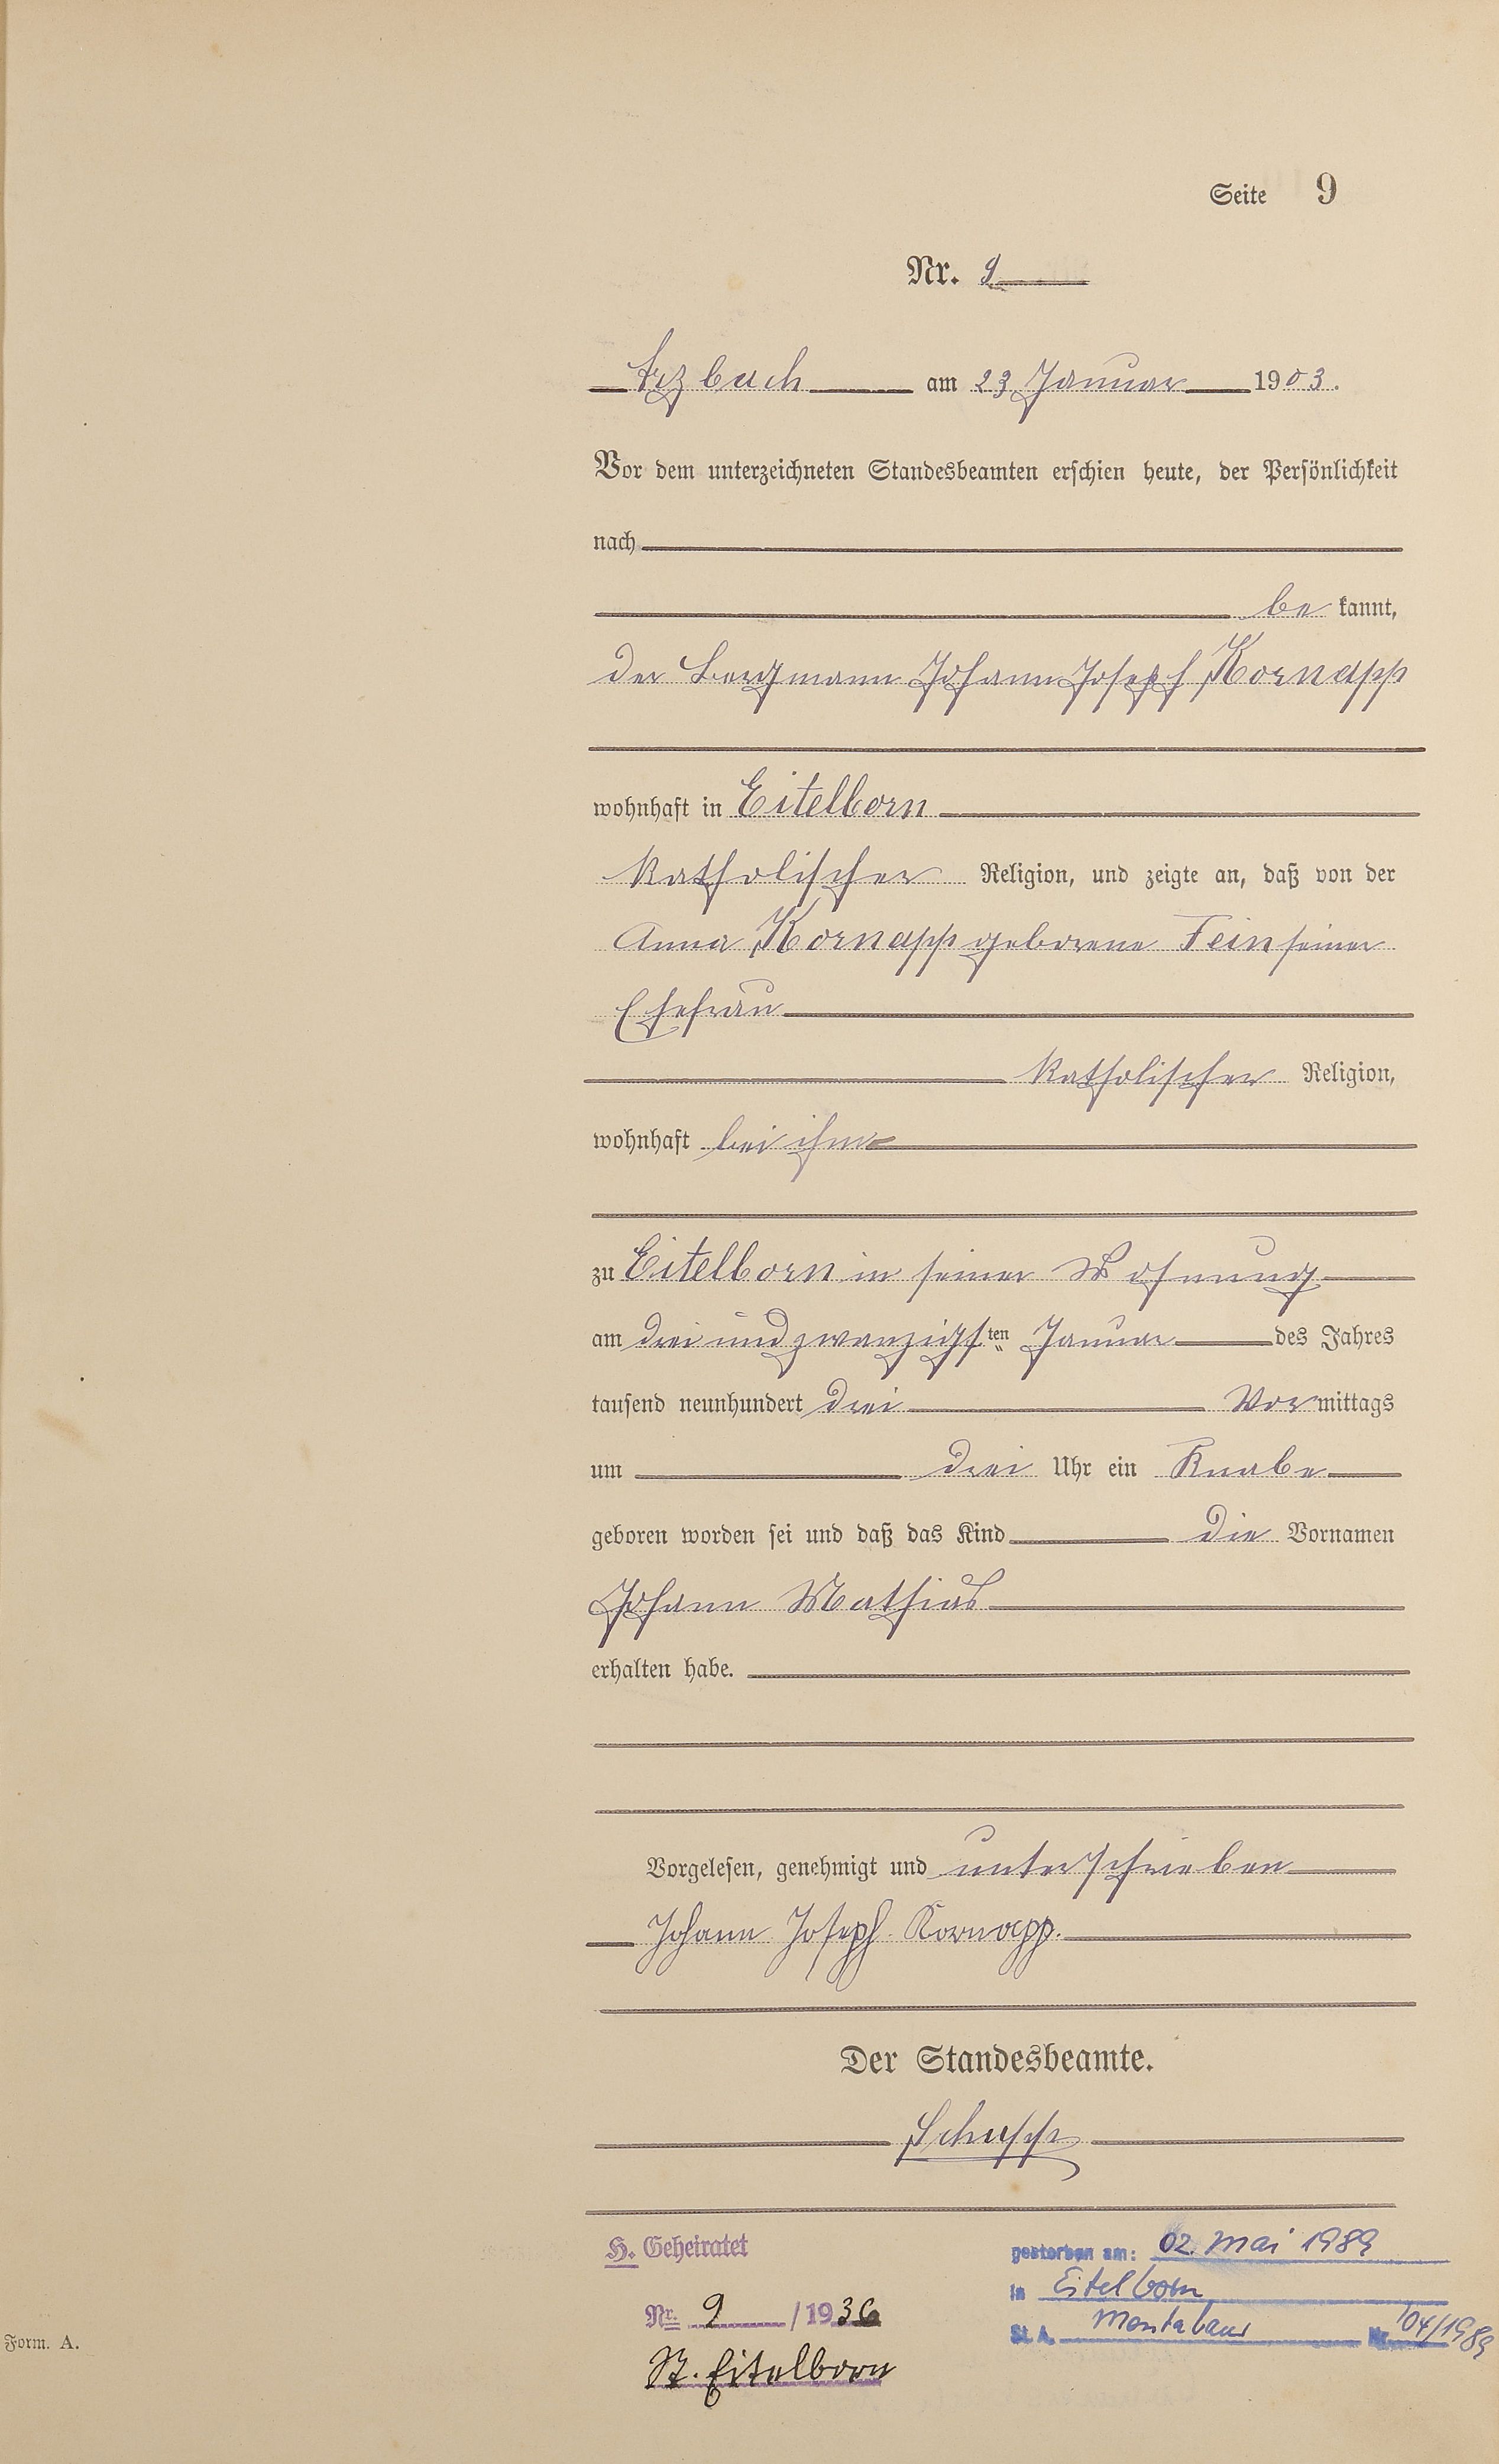 Seite 9
Nr. 9
Arzbach am 23 Januar 1903.
Vor dem unterzeichneten Standesbeamten erschien heute, der Persönlichkeit
nach
be kannt,
der Bergmann Johann Joseph Kornapp
wohnhaft in Eitelborn
katholischer Religion, und zeigte an, daß von der
Anna Kornapp geborene Fein seiner
Ehefrau
katholischer Religion,
wohnhaft bei ihm
zu Eitelborn in seiner Wohnung
am drei und zwanzigsten Januar des Jahres
tausend neunhundert drei Vormittags
um drei Uhr ein Knabe
geboren worden sei und daß das Kind die Vornamen
Johann Mathias
erhalten habe.
Vorgelesen, genehmigt und unterschrieben
Johann Joseph Kornapp.
Der Standesbeamte.
Schupp
H. Geheiratet
Nr. 9 /1936
St. Eitelborn
gestorben am: 02. Mai 1989
in Eitelborn
St. A. Montabaur Nr. 104/1989
Form. A.